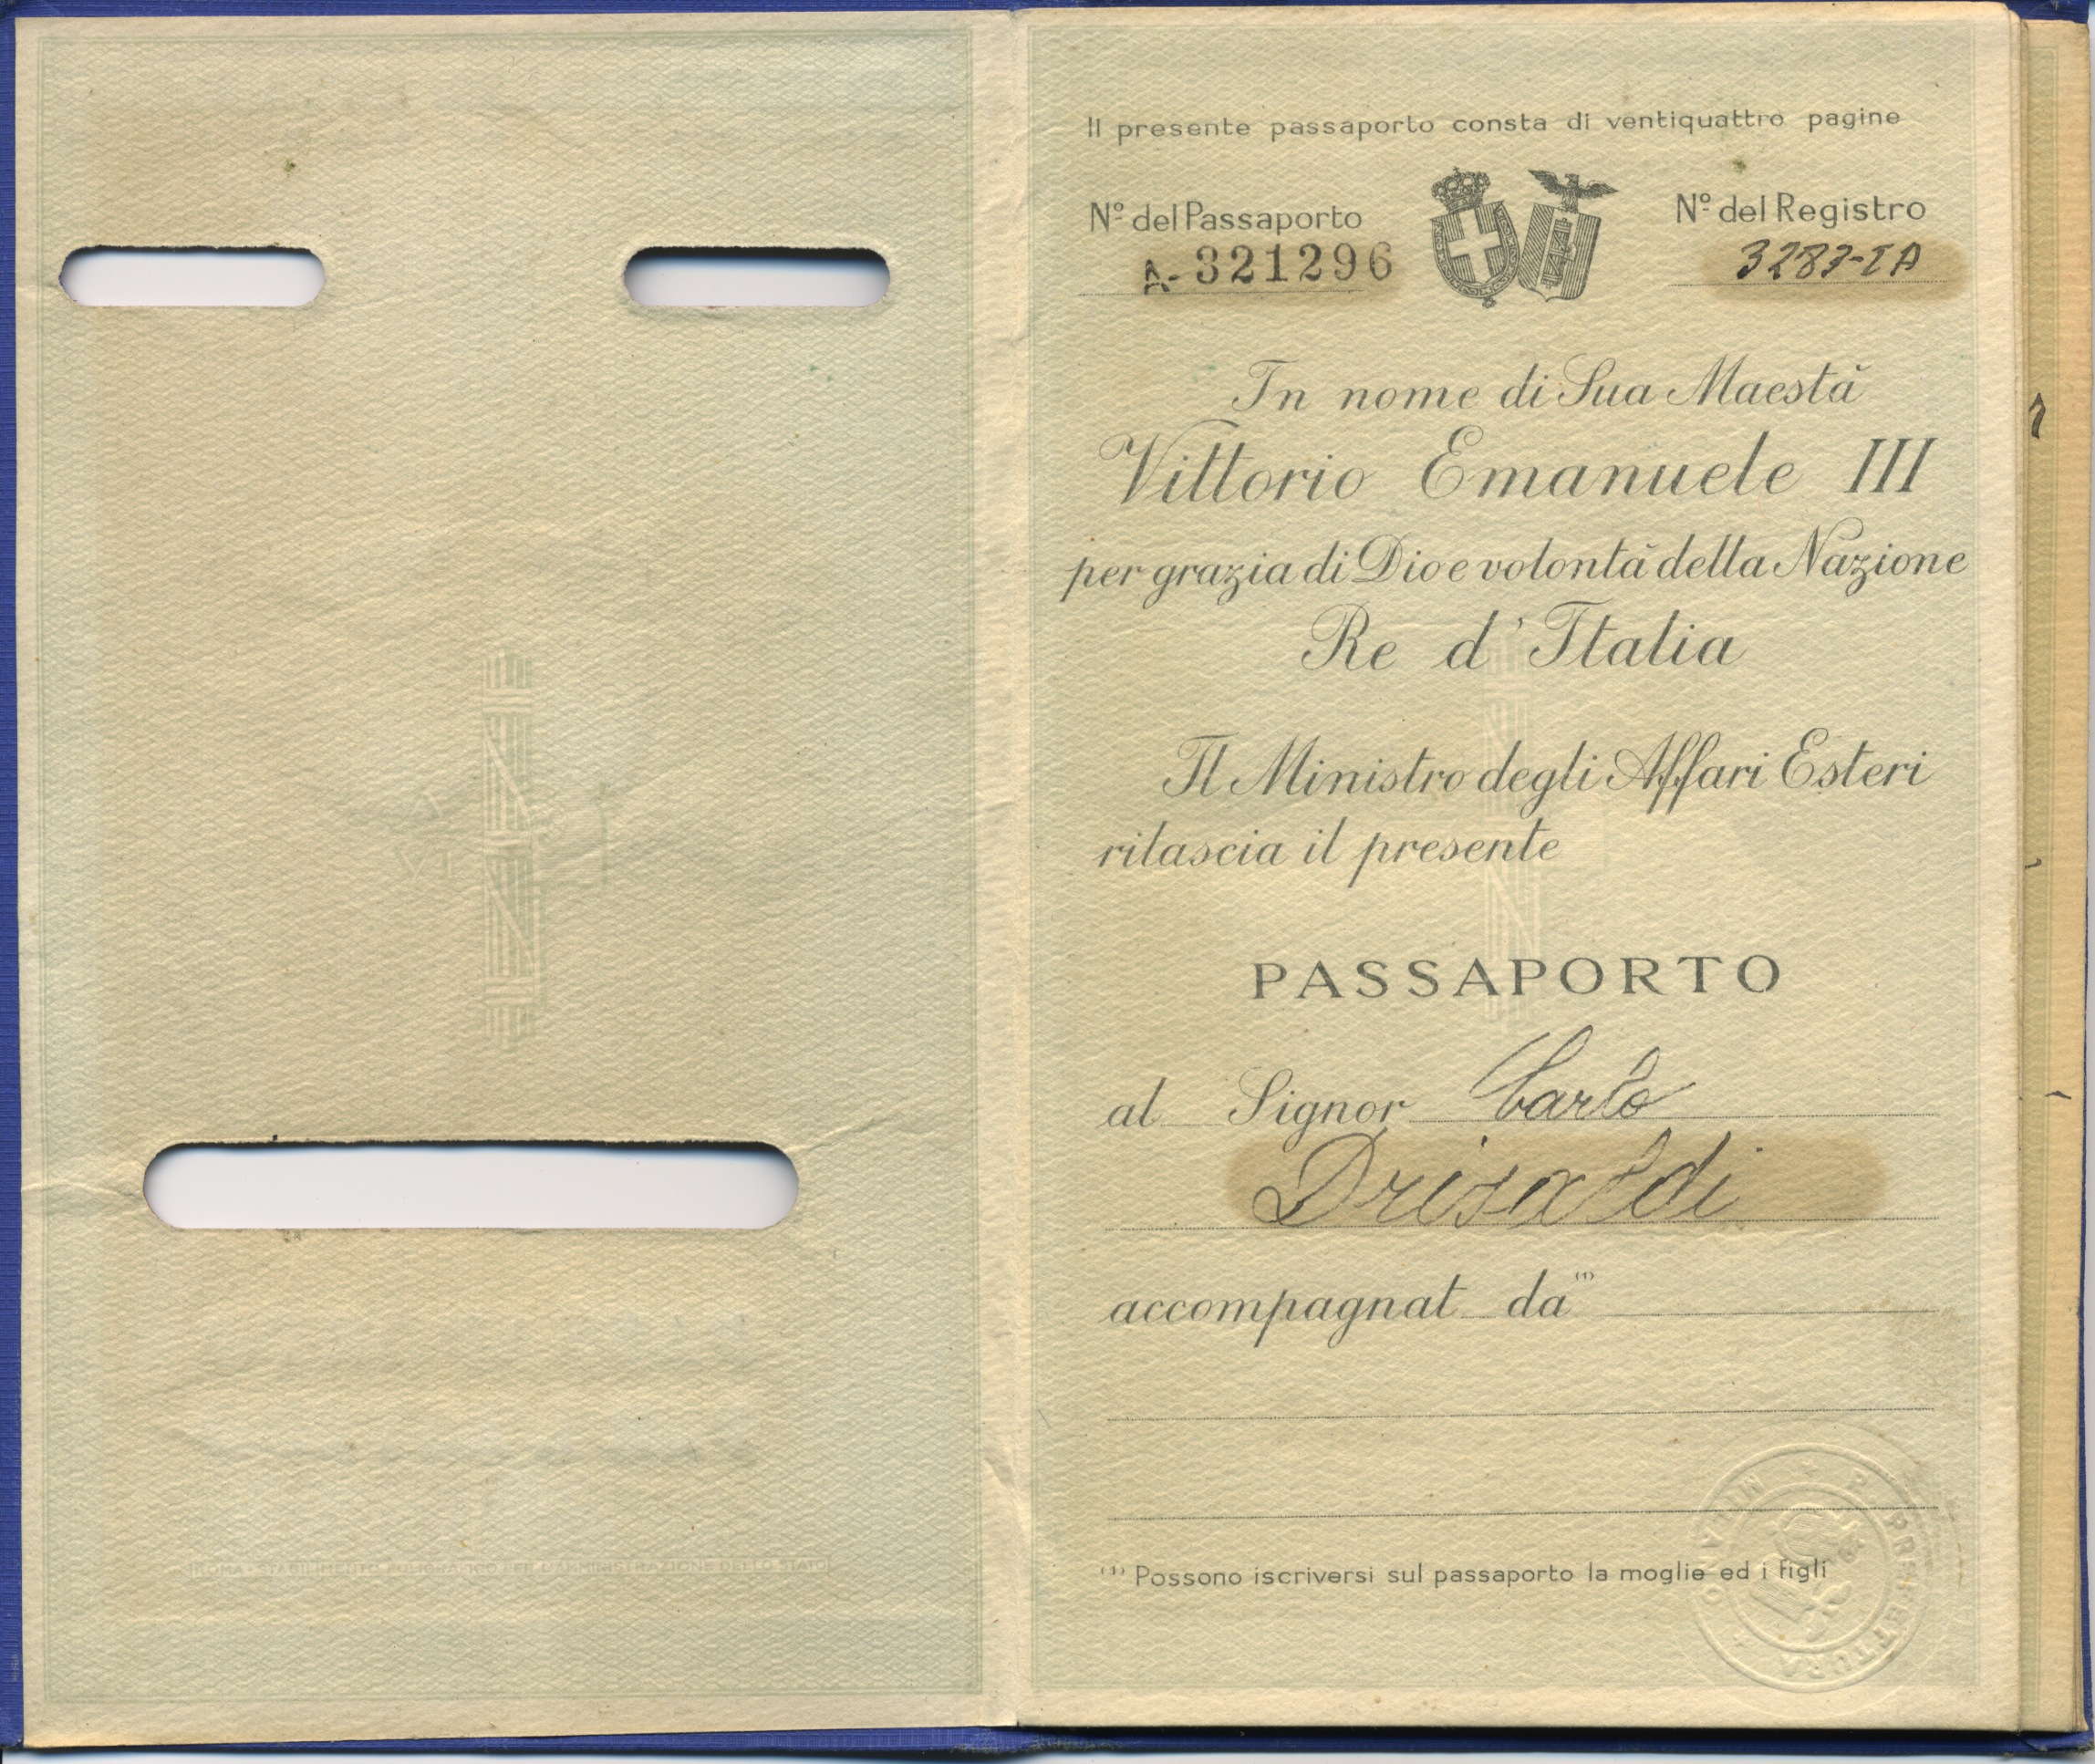 Il presente passaporto consta di ventiquattro pagine
Nº del Passaporto
A- 321296
Nº del Registro
3283-IA
In nome di Sua Maestà
Vittorio Emanuele III
per grazia di Dio e volontà della Nazione
Re d'Italia
Il Ministro degli Affari Esteri
rilascia il presente
PASSAPORTO
al Signor Carlo
Drisaldi
accompagnat da (1)
(1) Possono iscriversi sul passaporto la moglie ed i figli
R. PREFETTURA MILANO
ROMA - STABILIMENTO POLIGRAFICO PER L'AMMINISTRAZIONE DELLO STATO